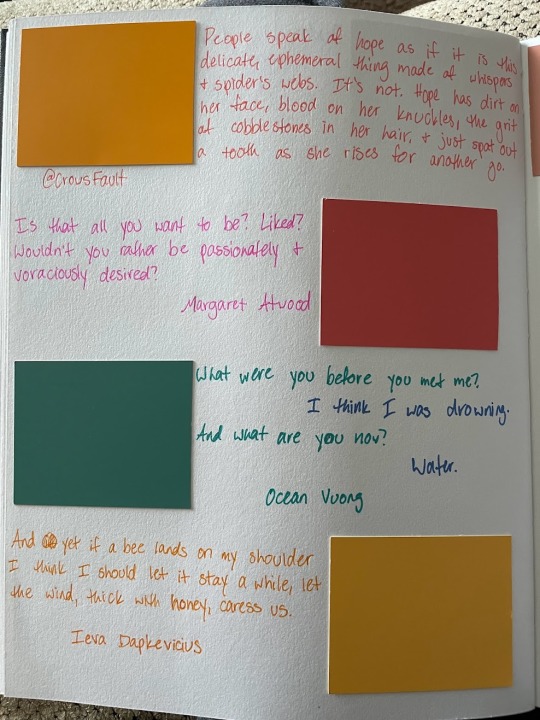 People speak of hope as if it is this
delicate, ephemeral thing made of whispers
+ spider's webs. It's not. Hope has dirt on
her face, blood on her knuckles, the grit
of cobblestones in her hair, + just spat out
a tooth as she rises for another go.
@CrowsFault
Is that all you want to be? Liked?
Wouldn't you rather be passionately +
voraciously desired?
Margaret Atwood
What were you before you met me?
I think I was drowning.
And what are you now?
Water.
Ocean Vuong
And yet if a bee lands on my shoulder
I think I should let it stay a while, let
the wind, thick with honey, caress us.
Ieva Dapkevicius